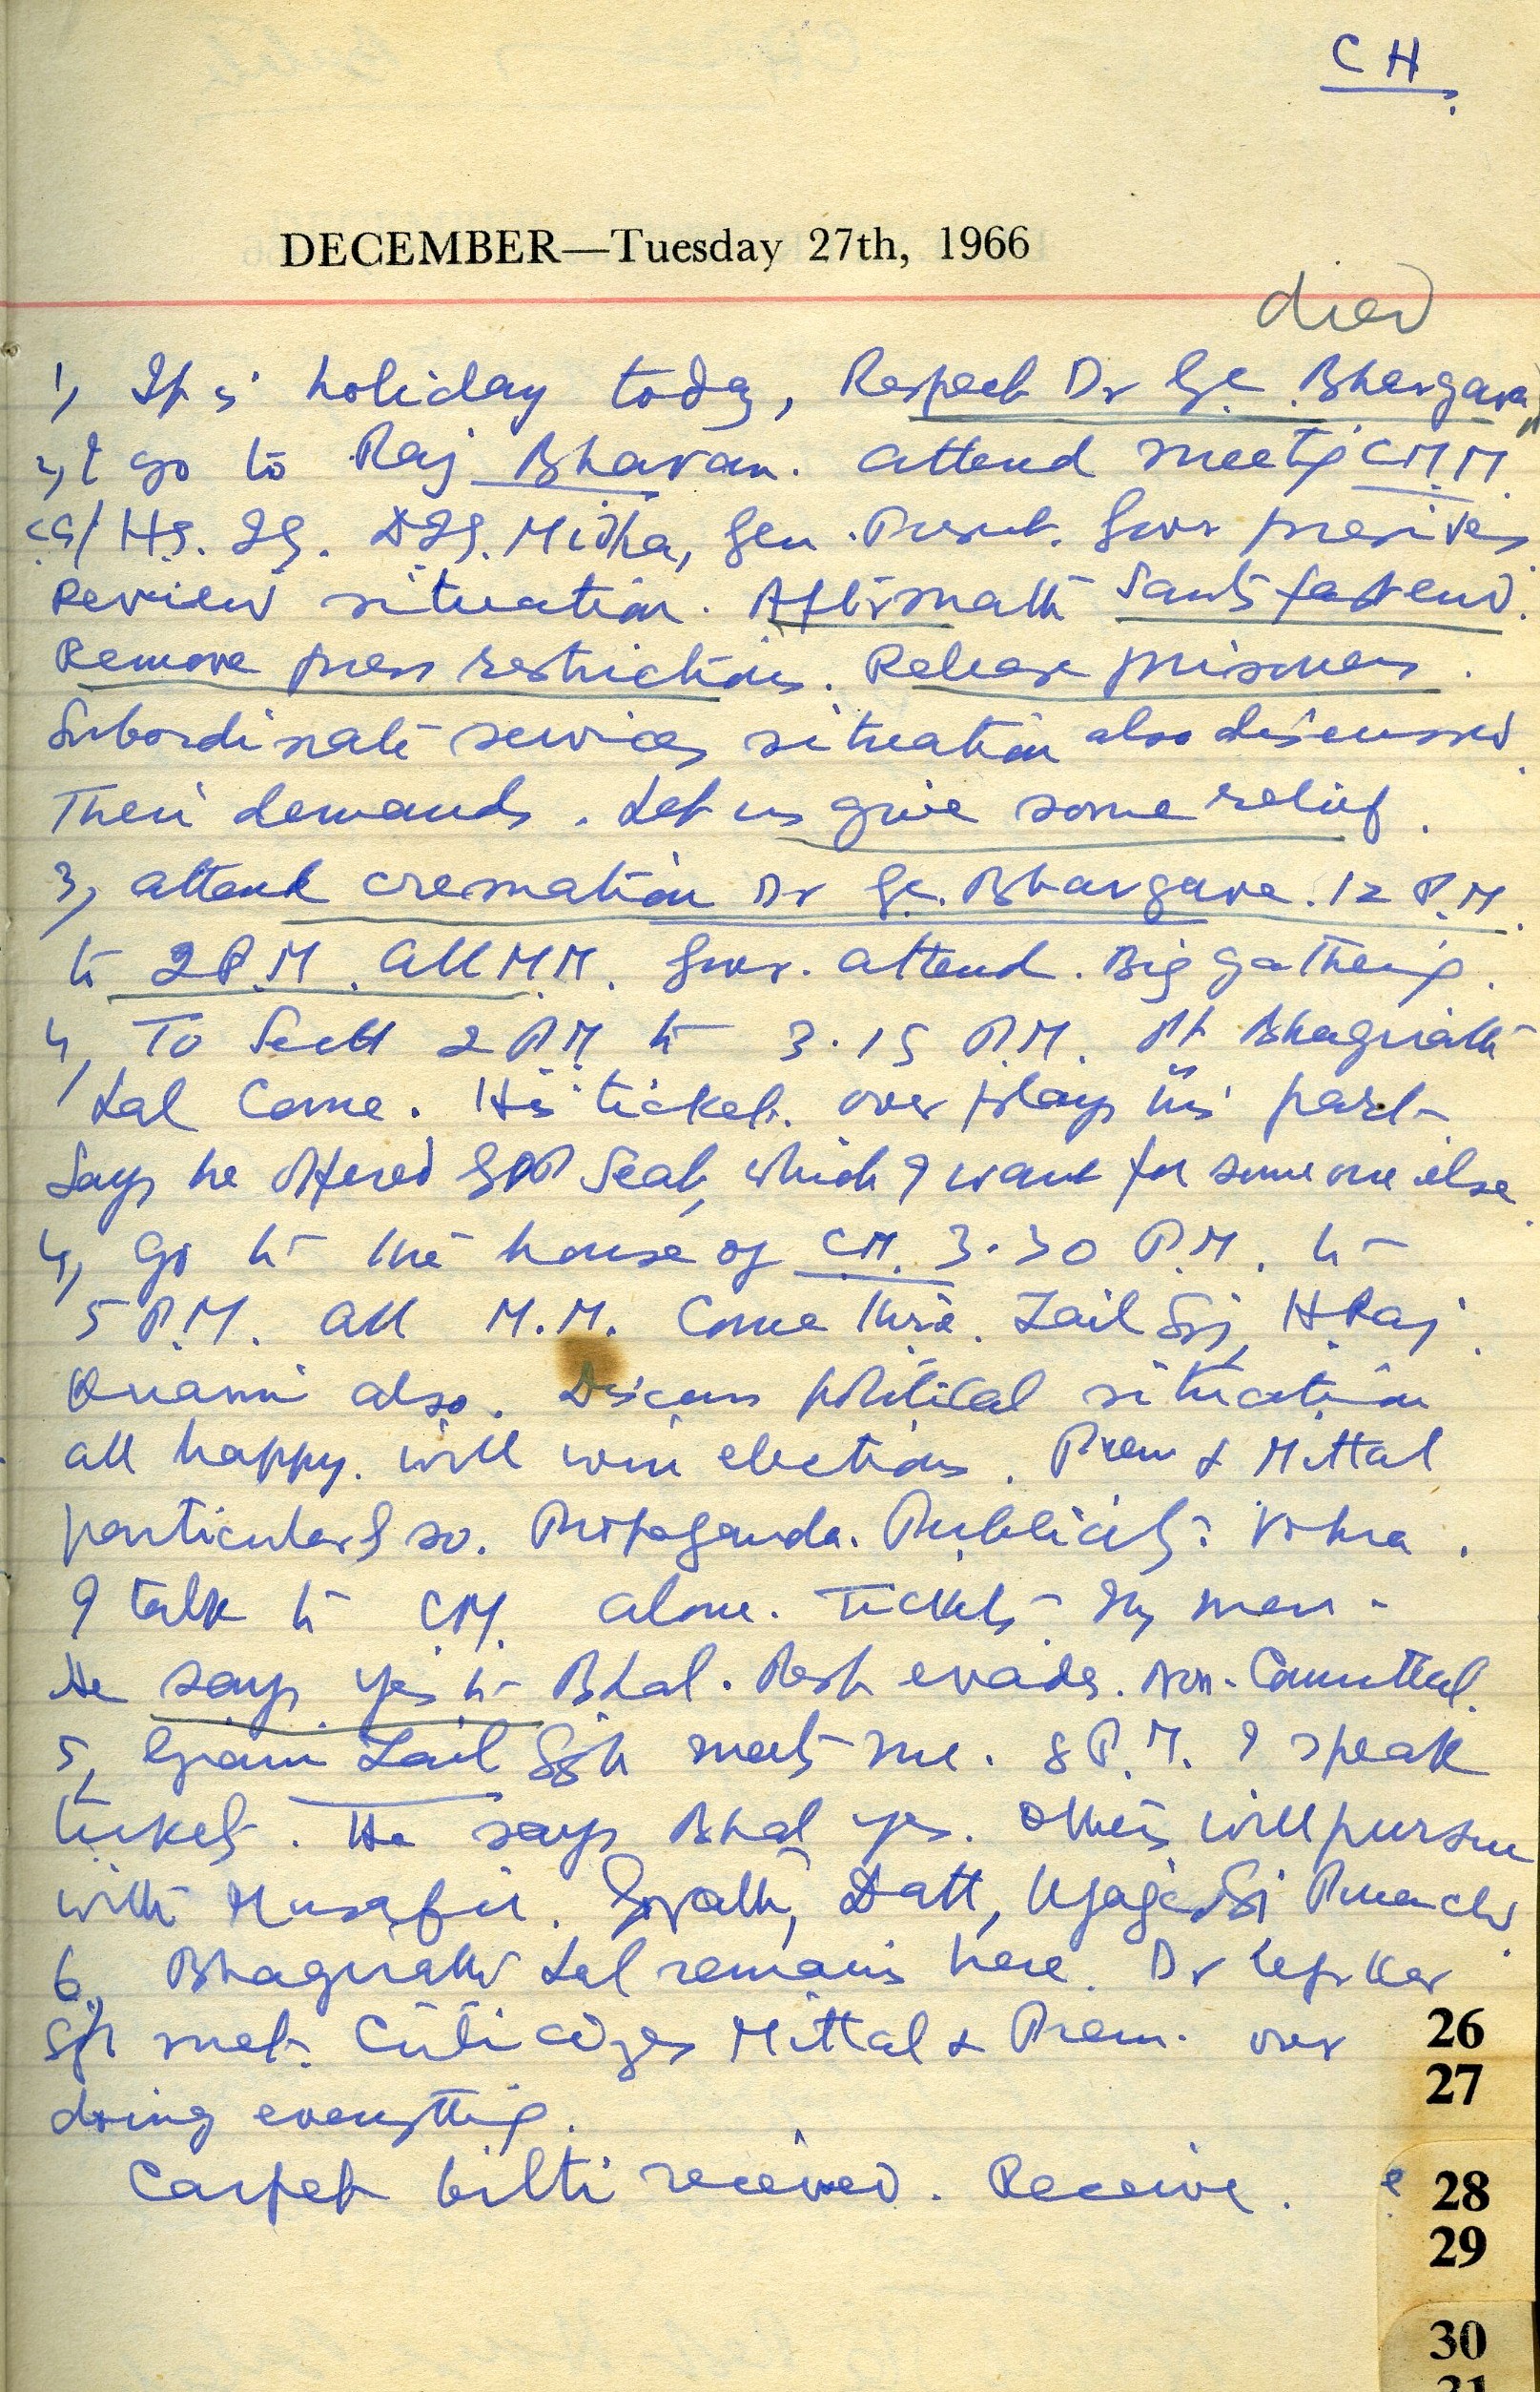 CH
DECEMBER—Tuesday 27th, 1966
died
1, It is holiday today, Respect Dr G.C. Bhargava
2, I go to Raj Bhavan. attend meeting C.M.M.
CS/ HS. IG. DIG. Midha, Gen. Present. Govr presides
Review situation. Aftermath Sant's fast end.
Remove press restrictions. Release prisoners.
Subordinate services situation also discussed.
Their demands. Let us give some relief.
3, attend cremation Dr G.C. Bhargava. 12 P.M.
to 2 P.M. all M.M. Govr. attend. Big gathering.
4, To Sectt 2 P.M to 3.15 P.M. Pt Bhagirath
Lal Come. His ticket. over plays his part.
Says he offered seat, which I want for some one else.
4, Go to the house of C.M. 3.30 P.M. to
5 P.M. all M.M. Come there. Zail Sgj, H. Raj.
also. Discuss political situation
all happy. will win elections. Prem & Mittal
particularly so. Propaganda. Publicity: Vohra.
I talk to CM. alone. Tickets - My men -
He says yes to B Lal. Rest evades. Non-Committal.
5, Giani Zail Sgh meets me. 8 P.M. I speak
tickets. He says B Lal yes. Others will pursue
with Musafir. Datt,
6, Bhagirath Lal remains here. Dr
met. Criticizes Mittal & Prem. over
doing everything.
Carpet bilti received. Receive.
26
27
28
29
30
31